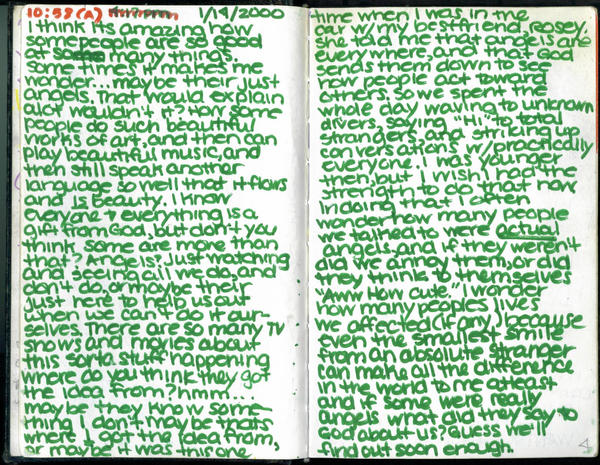 10:58(A) 1/19/2000
I think its amazing how
some people are so good
at so many things.
Some times it makes me
wonder... maybe their just
angels. That would explain
alot wouldn't it? How some
people do such beautiful
works of art, and then can
play beautiful music, and
then still speak another
language so well that it flows
and is beauty. I know
everyone + everything is a
gift from God, but don't you
think some are more than
that? Angels? Just watching
and seeing all we do, and
don't do, or maybe their
just here to help us out
when we can't do it our-
selves. There are so many TV
shows and movies about
this sorta stuff happening
where do you think they got
the idea from? hmm...
maybe they know some-
thing I don't, maybe thats
where I got the idea from,
or maybe it was this one
time when I was in the
car w/ my best friend,
She told me that angels are
everywhere, and that God
sends them down to see
how people act toward
others. So we spent the
whole day waving to unknown
drivers, saying "Hi" to total
strangers, and striking up
conversations w/ practically
everyone. I was younger
then, but I wish I had the
strength to do that now
In doing that I often
wonder how many people
we talked to were actual
angels, and if they weren't
did we annoy them, or did
they think to themselves
"Aww How cute." I wonder
how many peoples lives
we affected (if any) because
even the smallest smile
from an absolute stranger
can make all the difference
in the world to me atleast
and if some were really
angels what did they say to
God about us? Guess we'll
find out soon enough.